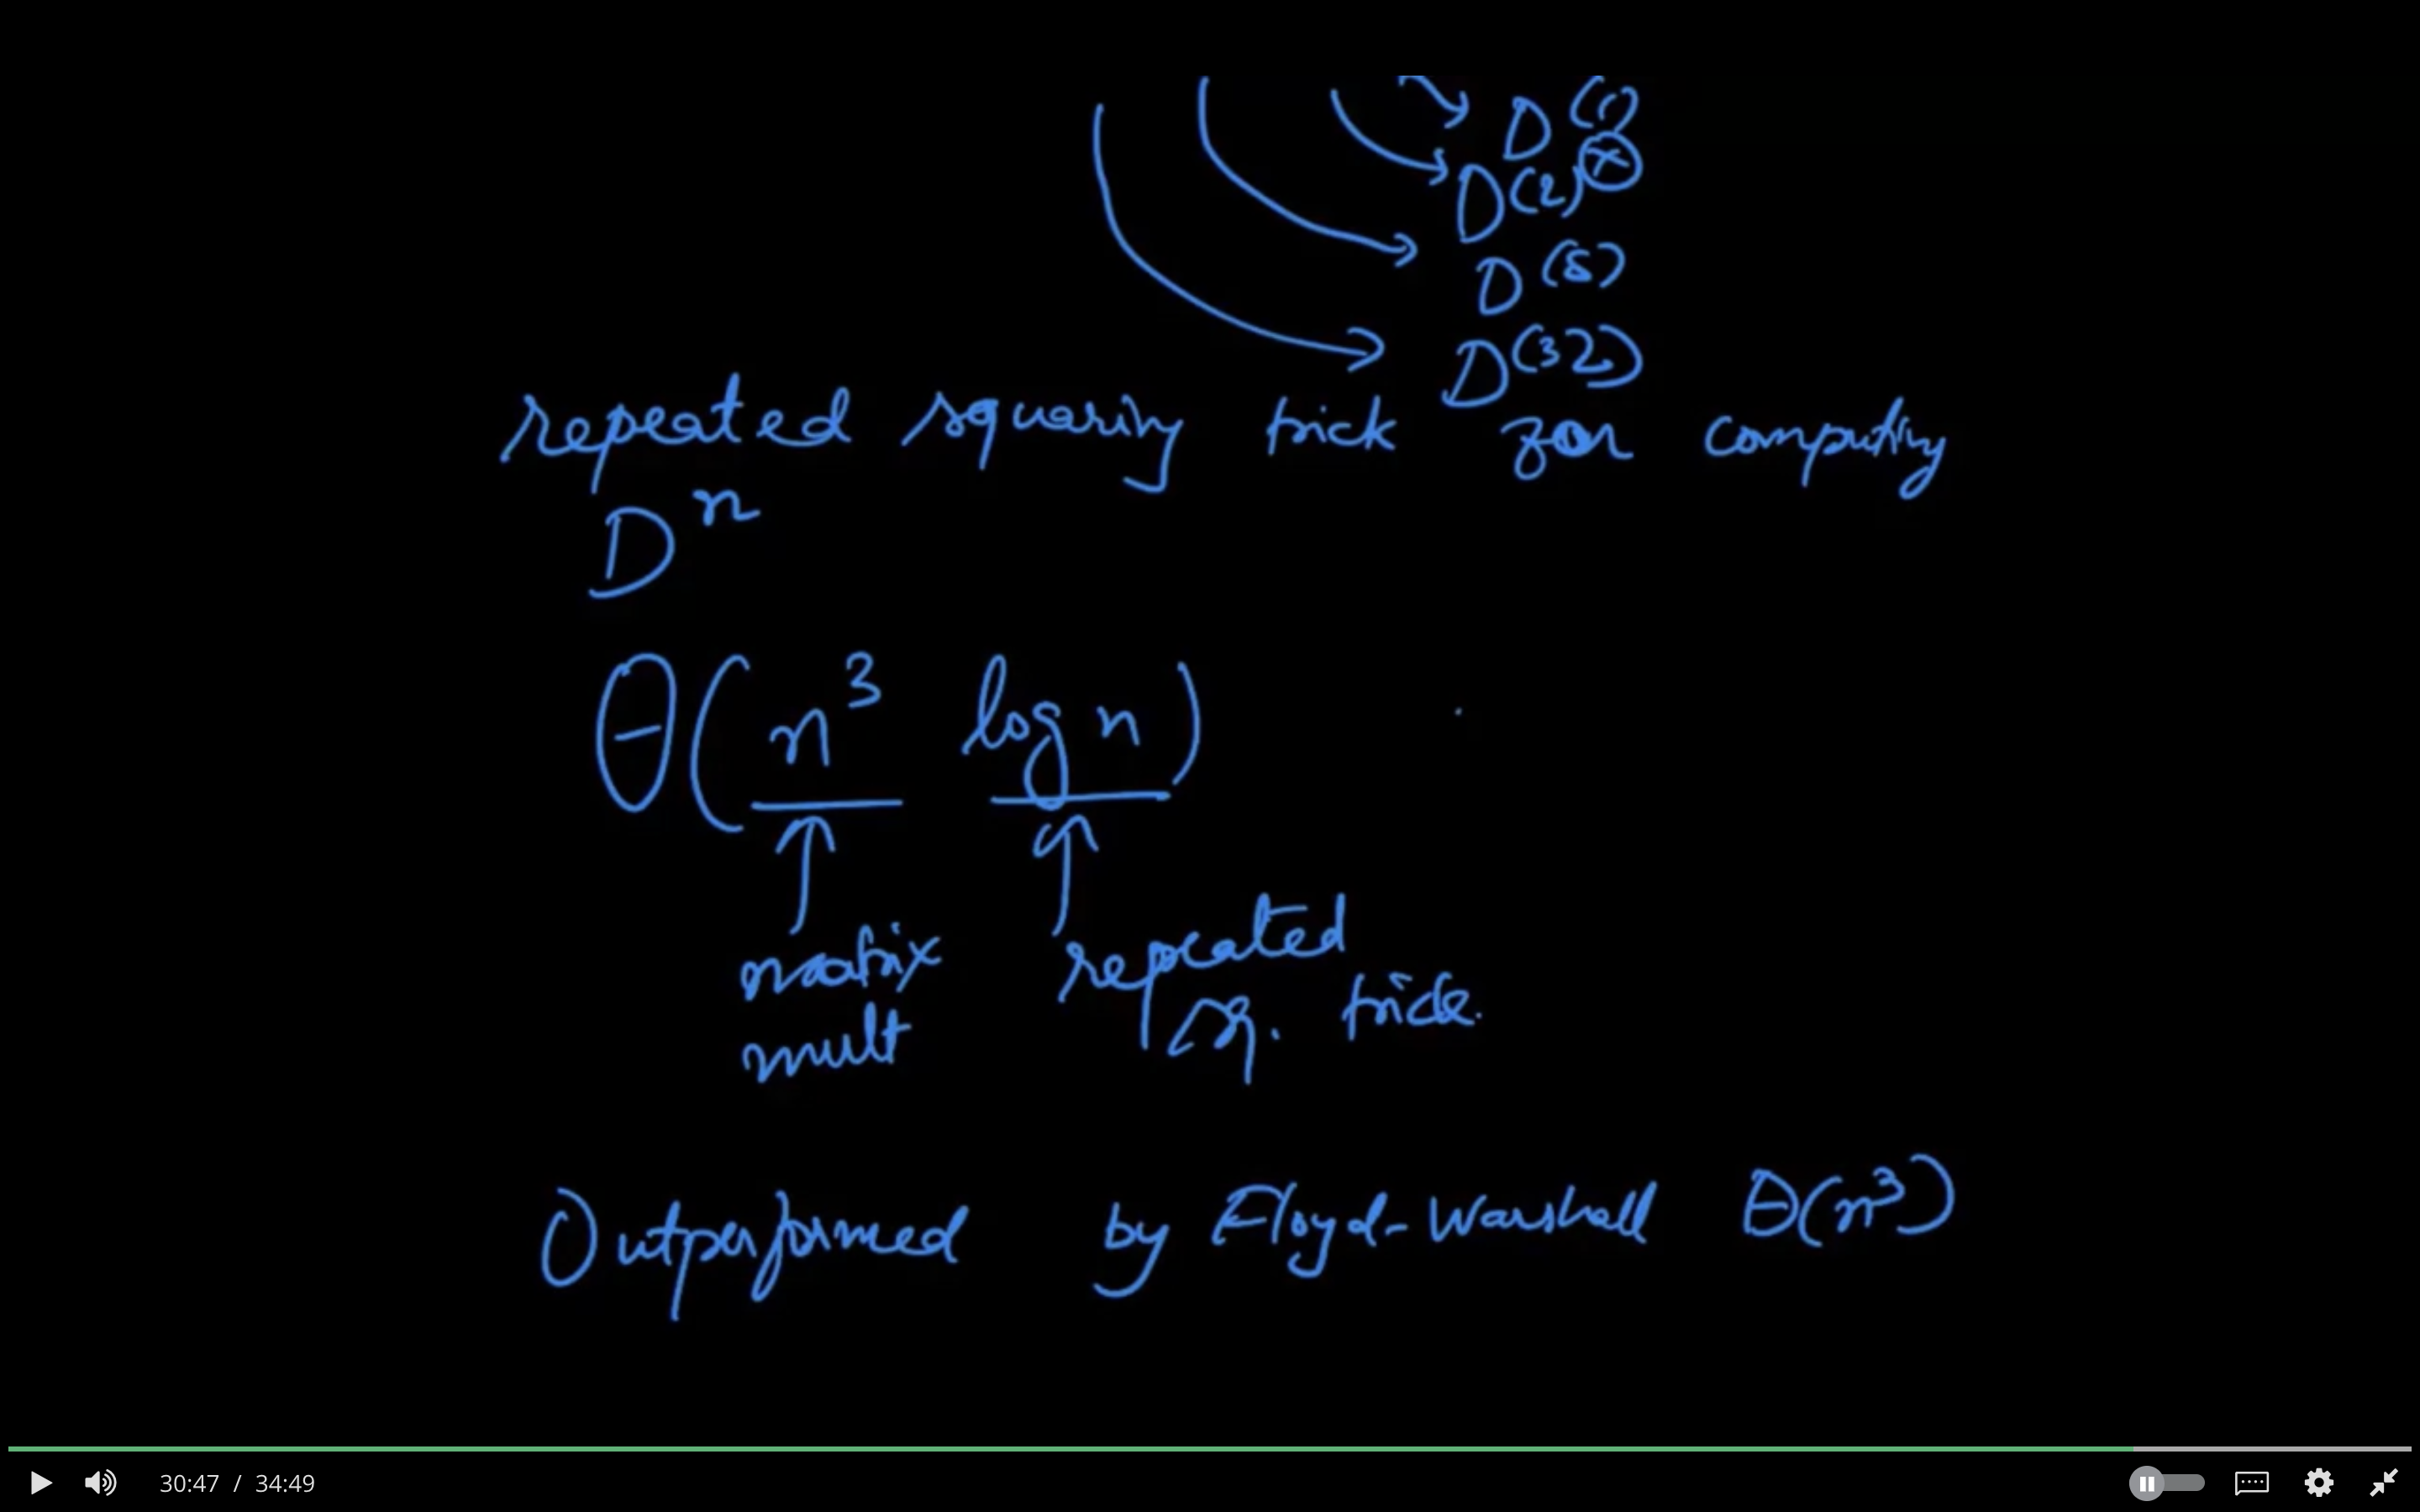 D(1)
D(2) ⊗
D(8)
D(32)
repeated squaring trick for computing
D^n
Θ(n^3 log n)
matrix repeated
mult sq. trick.
Outperformed by Floyd-Warshall Θ(n^3)
30:47 / 34:49